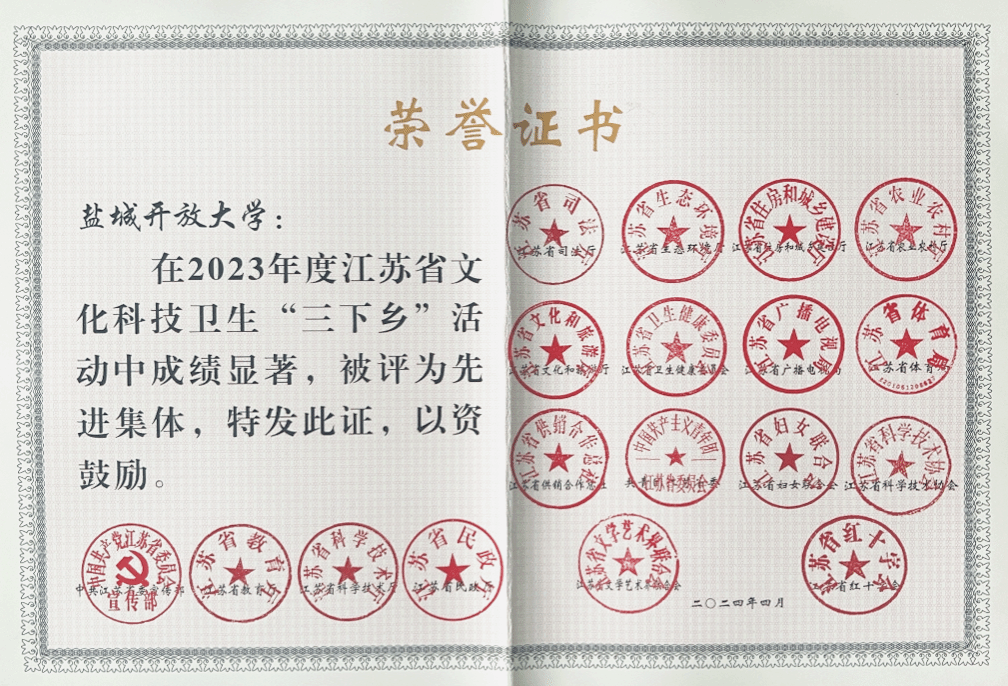 荣誉证书
盐城开放大学：
在2023年度江苏省文
化科技卫生“三下乡”活
动中成绩显著，被评为先
进集体，特发此证，以资
鼓励。
中共江苏省委宣传部 江苏省教育厅 江苏省科学技术厅 江苏省民政厅
江苏省司法厅 江苏省生态环境厅 江苏省住房和城乡建设厅 江苏省农业农村厅
江苏省文化和旅游厅 江苏省卫生健康委员会 江苏省广播电视局 江苏省体育局
江苏省供销合作总社 共青团江苏省委 江苏省妇女联合会 江苏省科学技术协会
江苏省文学艺术界联合会 江苏省红十字会
二〇二四年四月